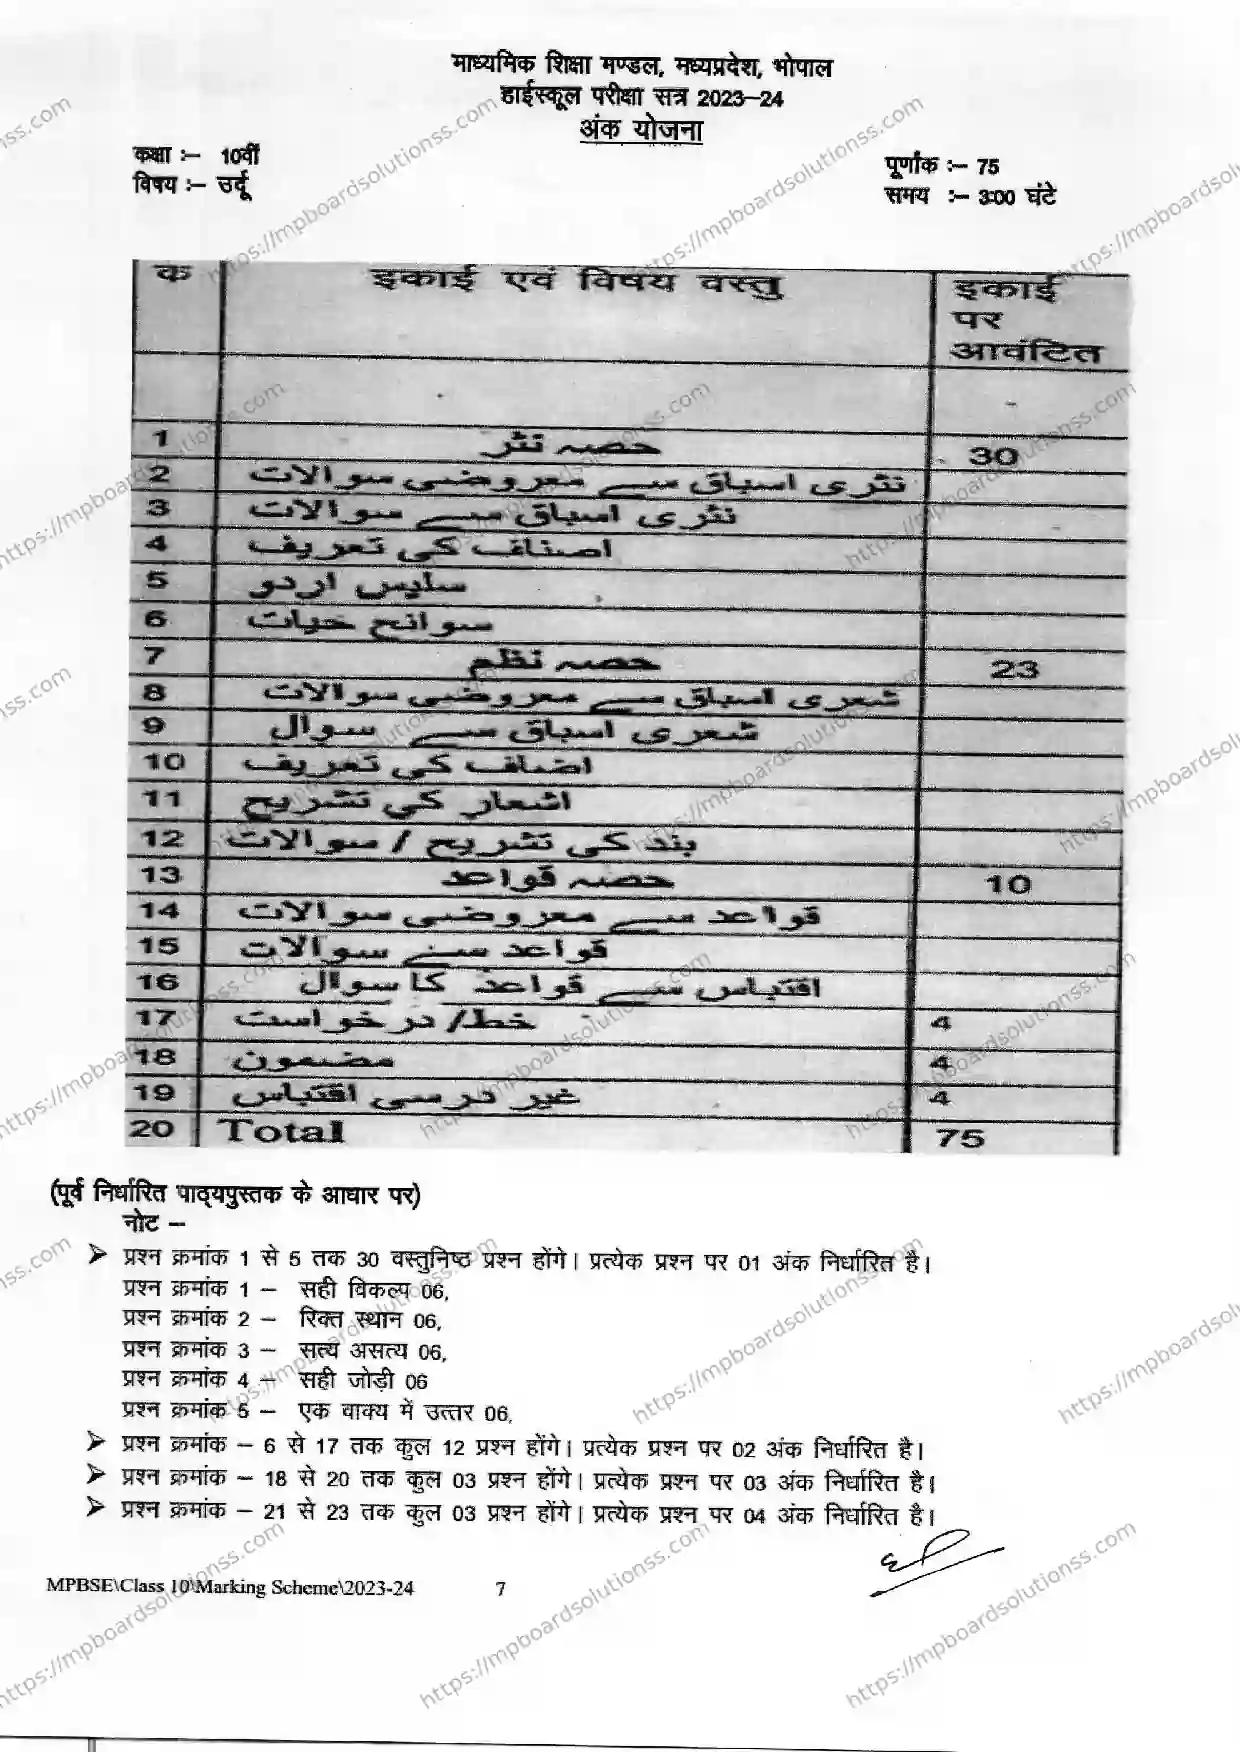 माध्यमिक शिक्षा मण्डल, मध्यप्रदेश, भोपाल
हाईस्कूल परीक्षा सत्र 2023–24
अंक योजना
कक्षा :– 10वीं
पूर्णांक :– 75
विषय :– उर्दू
समय :– 3:00 घंटे
क इकाई एवं विषय वस्तु इकाई पर आवंटित
1 حصہ نثر 30
2 نثری اسباق سے معروضی سوالات
3 نثری اسباق سے سوالات
4 اصناف کی تعریف
5 سلیس اردو
6 سوانح حیات
7 حصہ نظم 23
8 شعری اسباق سے معروضی سوالات
9 شعری اسباق سے سوال
10 اضاف کی تعریف
11 اشعار کی تشریح
12 بند کی تشریح / سوالات
13 حصہ قواعد 10
14 قواعد سے معروضی سوالات
15 قواعد سے سوالات
16 اقتباس سے قواعد کا سوال
17 خط/ درخواست 4
18 مضمون 4
19 غیر درسی اقتباس 4
20 Total 75
(पूर्व निर्धारित पाठ्यपुस्तक के आधार पर)
नोट –
➢ प्रश्न क्रमांक 1 से 5 तक 30 वस्तुनिष्ठ प्रश्न होंगे। प्रत्येक प्रश्न पर 01 अंक निर्धारित है।
प्रश्न क्रमांक 1 – सही विकल्प 06,
प्रश्न क्रमांक 2 – रिक्त स्थान 06,
प्रश्न क्रमांक 3 – सत्य असत्य 06,
प्रश्न क्रमांक 4 – सही जोड़ी 06
प्रश्न क्रमांक 5 – एक वाक्य में उत्तर 06,
➢ प्रश्न क्रमांक – 6 से 17 तक कुल 12 प्रश्न होंगे। प्रत्येक प्रश्न पर 02 अंक निर्धारित है।
➢ प्रश्न क्रमांक – 18 से 20 तक कुल 03 प्रश्न होंगे। प्रत्येक प्रश्न पर 03 अंक निर्धारित है।
➢ प्रश्न क्रमांक – 21 से 23 तक कुल 03 प्रश्न होंगे। प्रत्येक प्रश्न पर 04 अंक निर्धारित है।
MPBSE\Class 10\Marking Scheme\2023-24 7
https://mpboardsolutionss.com